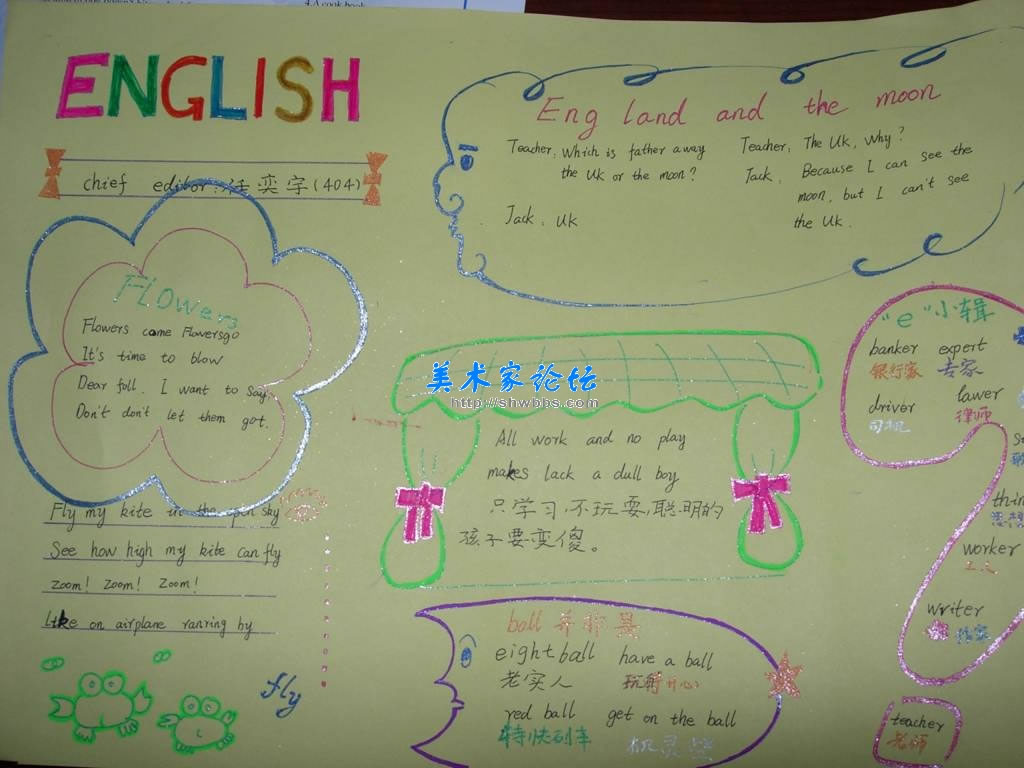 4.A cook book
ENGLISH
chief editor: 奕字(404)
Flowers
Flowers come Flowersgo
It's time to blow
Dear foll. I want to say.
Don't don't let them got.
Fly my kite in the open sky
See how high my kite can fly
Zoom! Zoom! Zoom!
Like on airplane ranring by
fly
Eng land and the moon
Teacher: Which is father away
the UK or the moon?
Jack: UK
Teacher: The UK, Why?
Jack: Because I can see the
moon, but I can't see
the UK.
美术家论坛
http://shwbbs.com
All work and no play
makes lack a dull boy
只学习,不玩耍,聪明的
孩子要变傻。
ball 并非是
eightball have a ball
老实人 玩得开心
red ball get on the ball
特快列车 机灵些
"e"小辑
banker expert
银行家 专家
driver lawer
司机 律师
worker
工人
writer
作家
teacher
老师